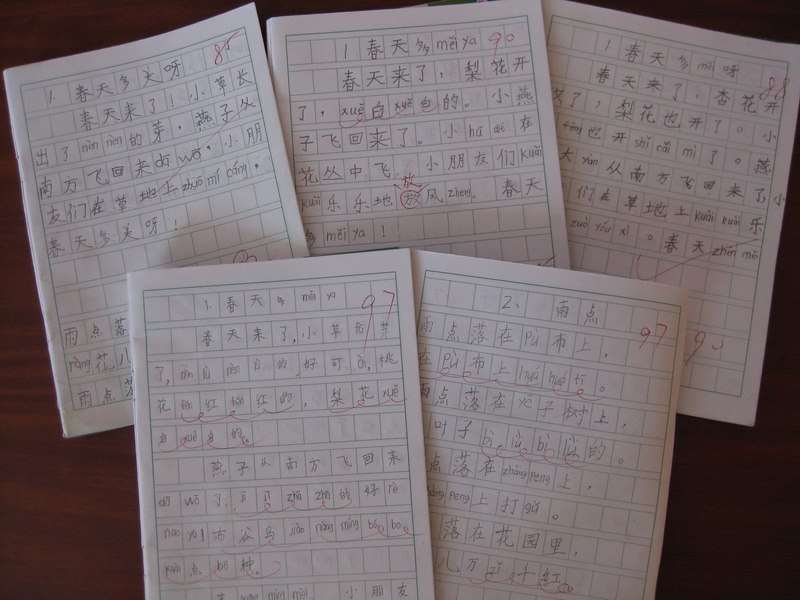 1. 春天多美呀
85
春天来了!小草长
出了nèn nèn的芽。燕子从
南方飞回来dā wō。小朋
友们在草地上zhuō mí cáng。
春天多美呀!
雨点落
花儿
雨点落
1 春天多měi ya
90
春天来了,梨花开
了,xuě白xuě白的。小燕
子飞回来了。小hú dié在
花丛中飞。小朋友们kuài
kuài乐乐地放风zheng。春天
放
多měi ya!
1 春天多měi呀
88
春天来了,杏花开
了,梨花也开了。小
也开shèng了。燕
从南方飞回来了小
们在草地上kuài kuài乐
zuò yóu xì。春天zhēn měi
1. 春天多měi ya
97
春天来了,小草发芽
了,nèn lǜ nèn lǜ的,好可ài,桃
花fěn红fěn红的,梨花xuě
白xuě白的。
燕子从南方飞回来
dā wō了,jī jī zhā zhā的好rè
nao ya!布谷鸟jiào
kuài点bō种。
小朋友
2、雨点
97
雨点落在pù布上,
在pù布上huá huá tī。
雨点落在yē子树上,
叶子bì lǜ bì lǜ的。
点落在zhàng peng上,
zhàng peng上打gǔ。
落在花园里,
儿万zǐ千红。